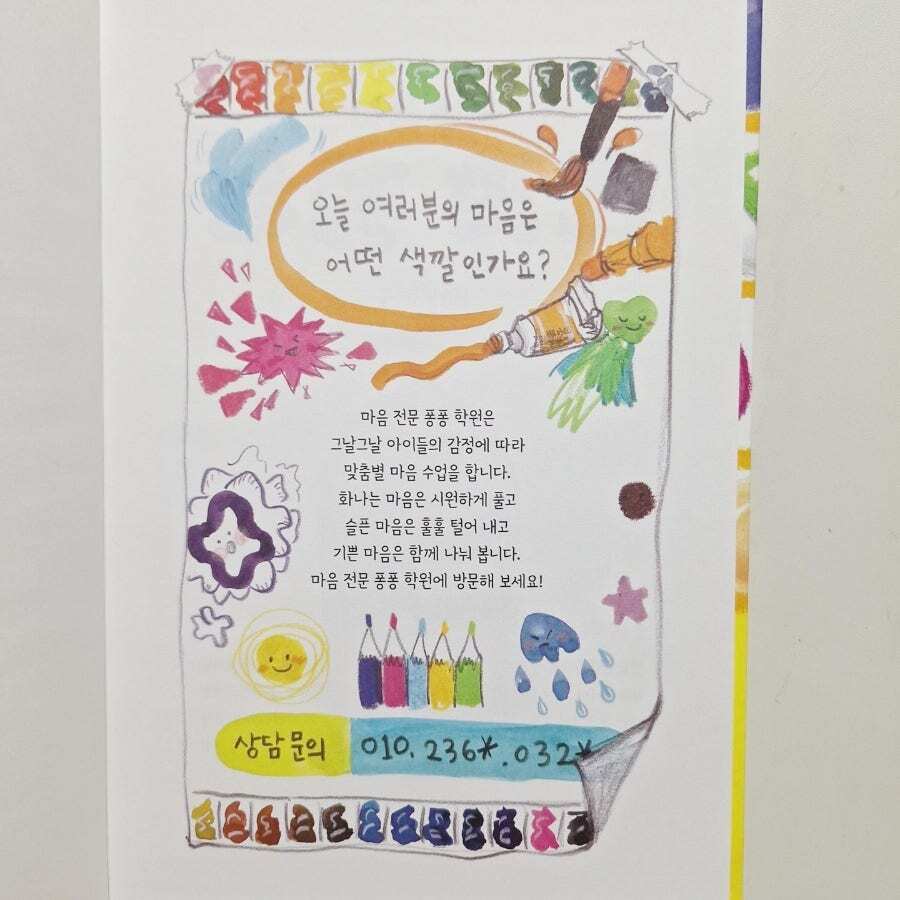 오늘 여러분의 마음은
어떤 색깔인가요?
마음 전문 퐁퐁 학원은
그날그날 아이들의 감정에 따라
맞춤별 마음 수업을 합니다.
화나는 마음은 시원하게 풀고
슬픈 마음은 훌훌 털어 내고
기쁜 마음은 함께 나눠 봅니다.
마음 전문 퐁퐁 학원에 방문해 보세요!
상담 문의 010.236*.032*